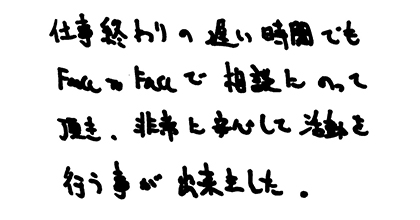 仕事終わりの遅い時間でも
Face to Faceで相談にのって
頂き、非常に安心して活動を
行う事が出来ました。